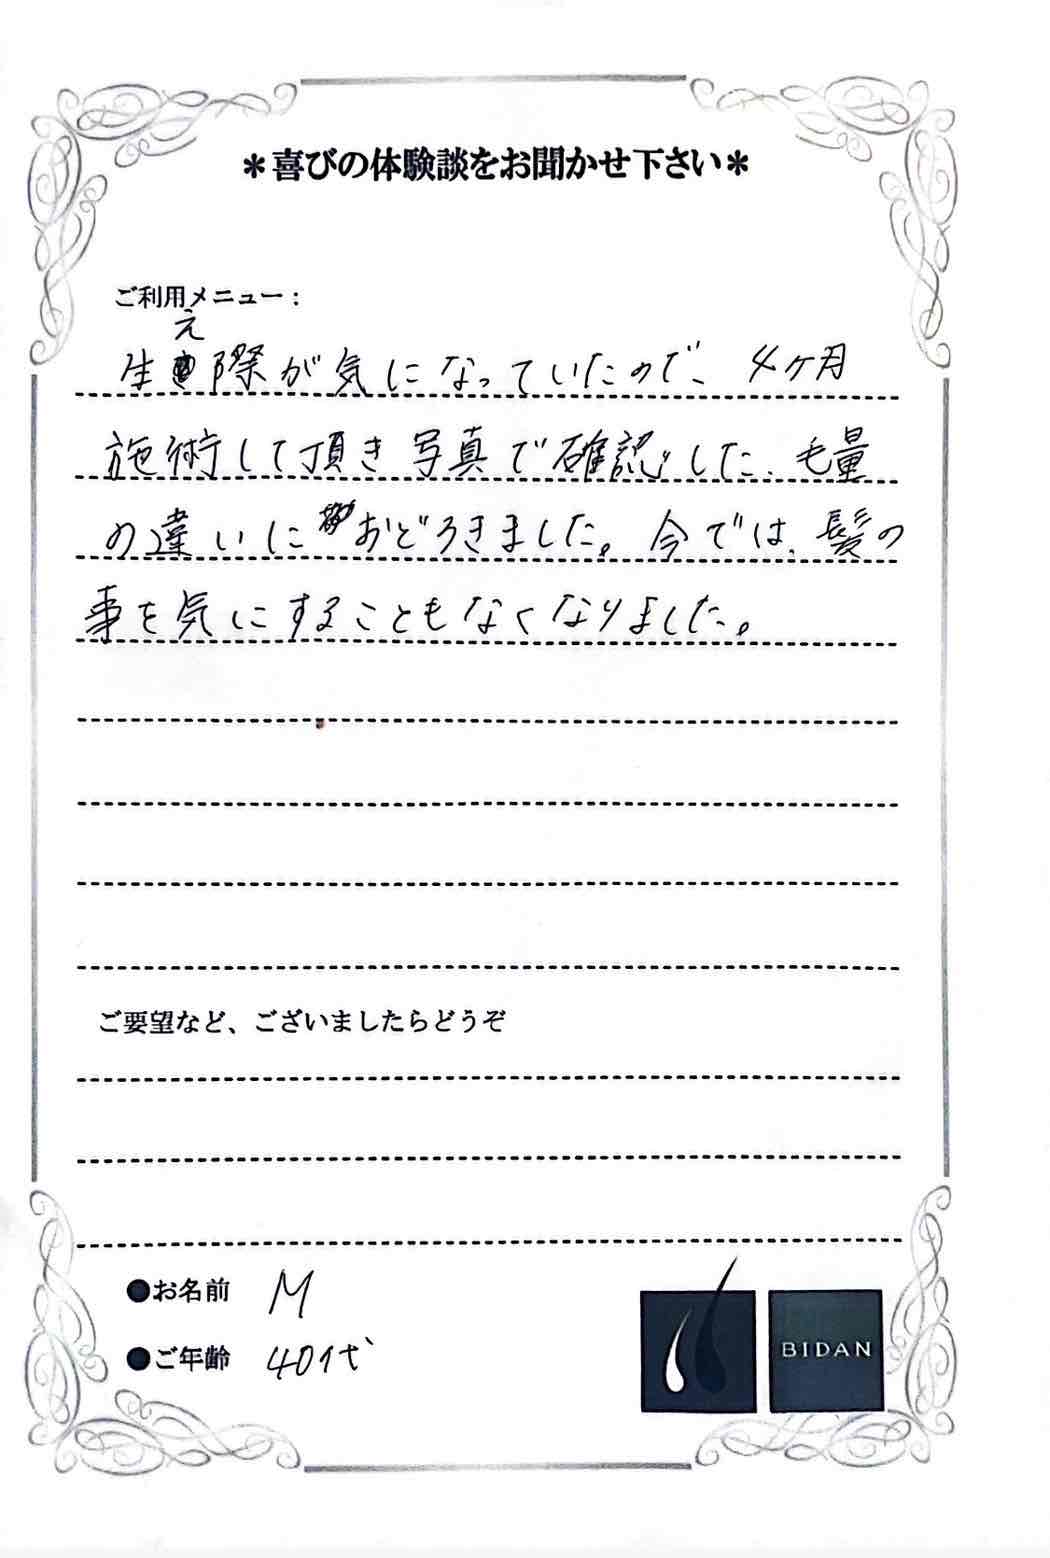 ＊喜びの体験談をお聞かせ下さい＊
ご利用メニュー：
生え際が気になっていたので、4ヶ月
施術して頂き写真で確認した、毛量
の違いにおどろきました。今では、髪の
事を気にすることもなくなりました。
ご要望など、ございましたらどうぞ
●お名前 M
●ご年齢 40代
BIDAN